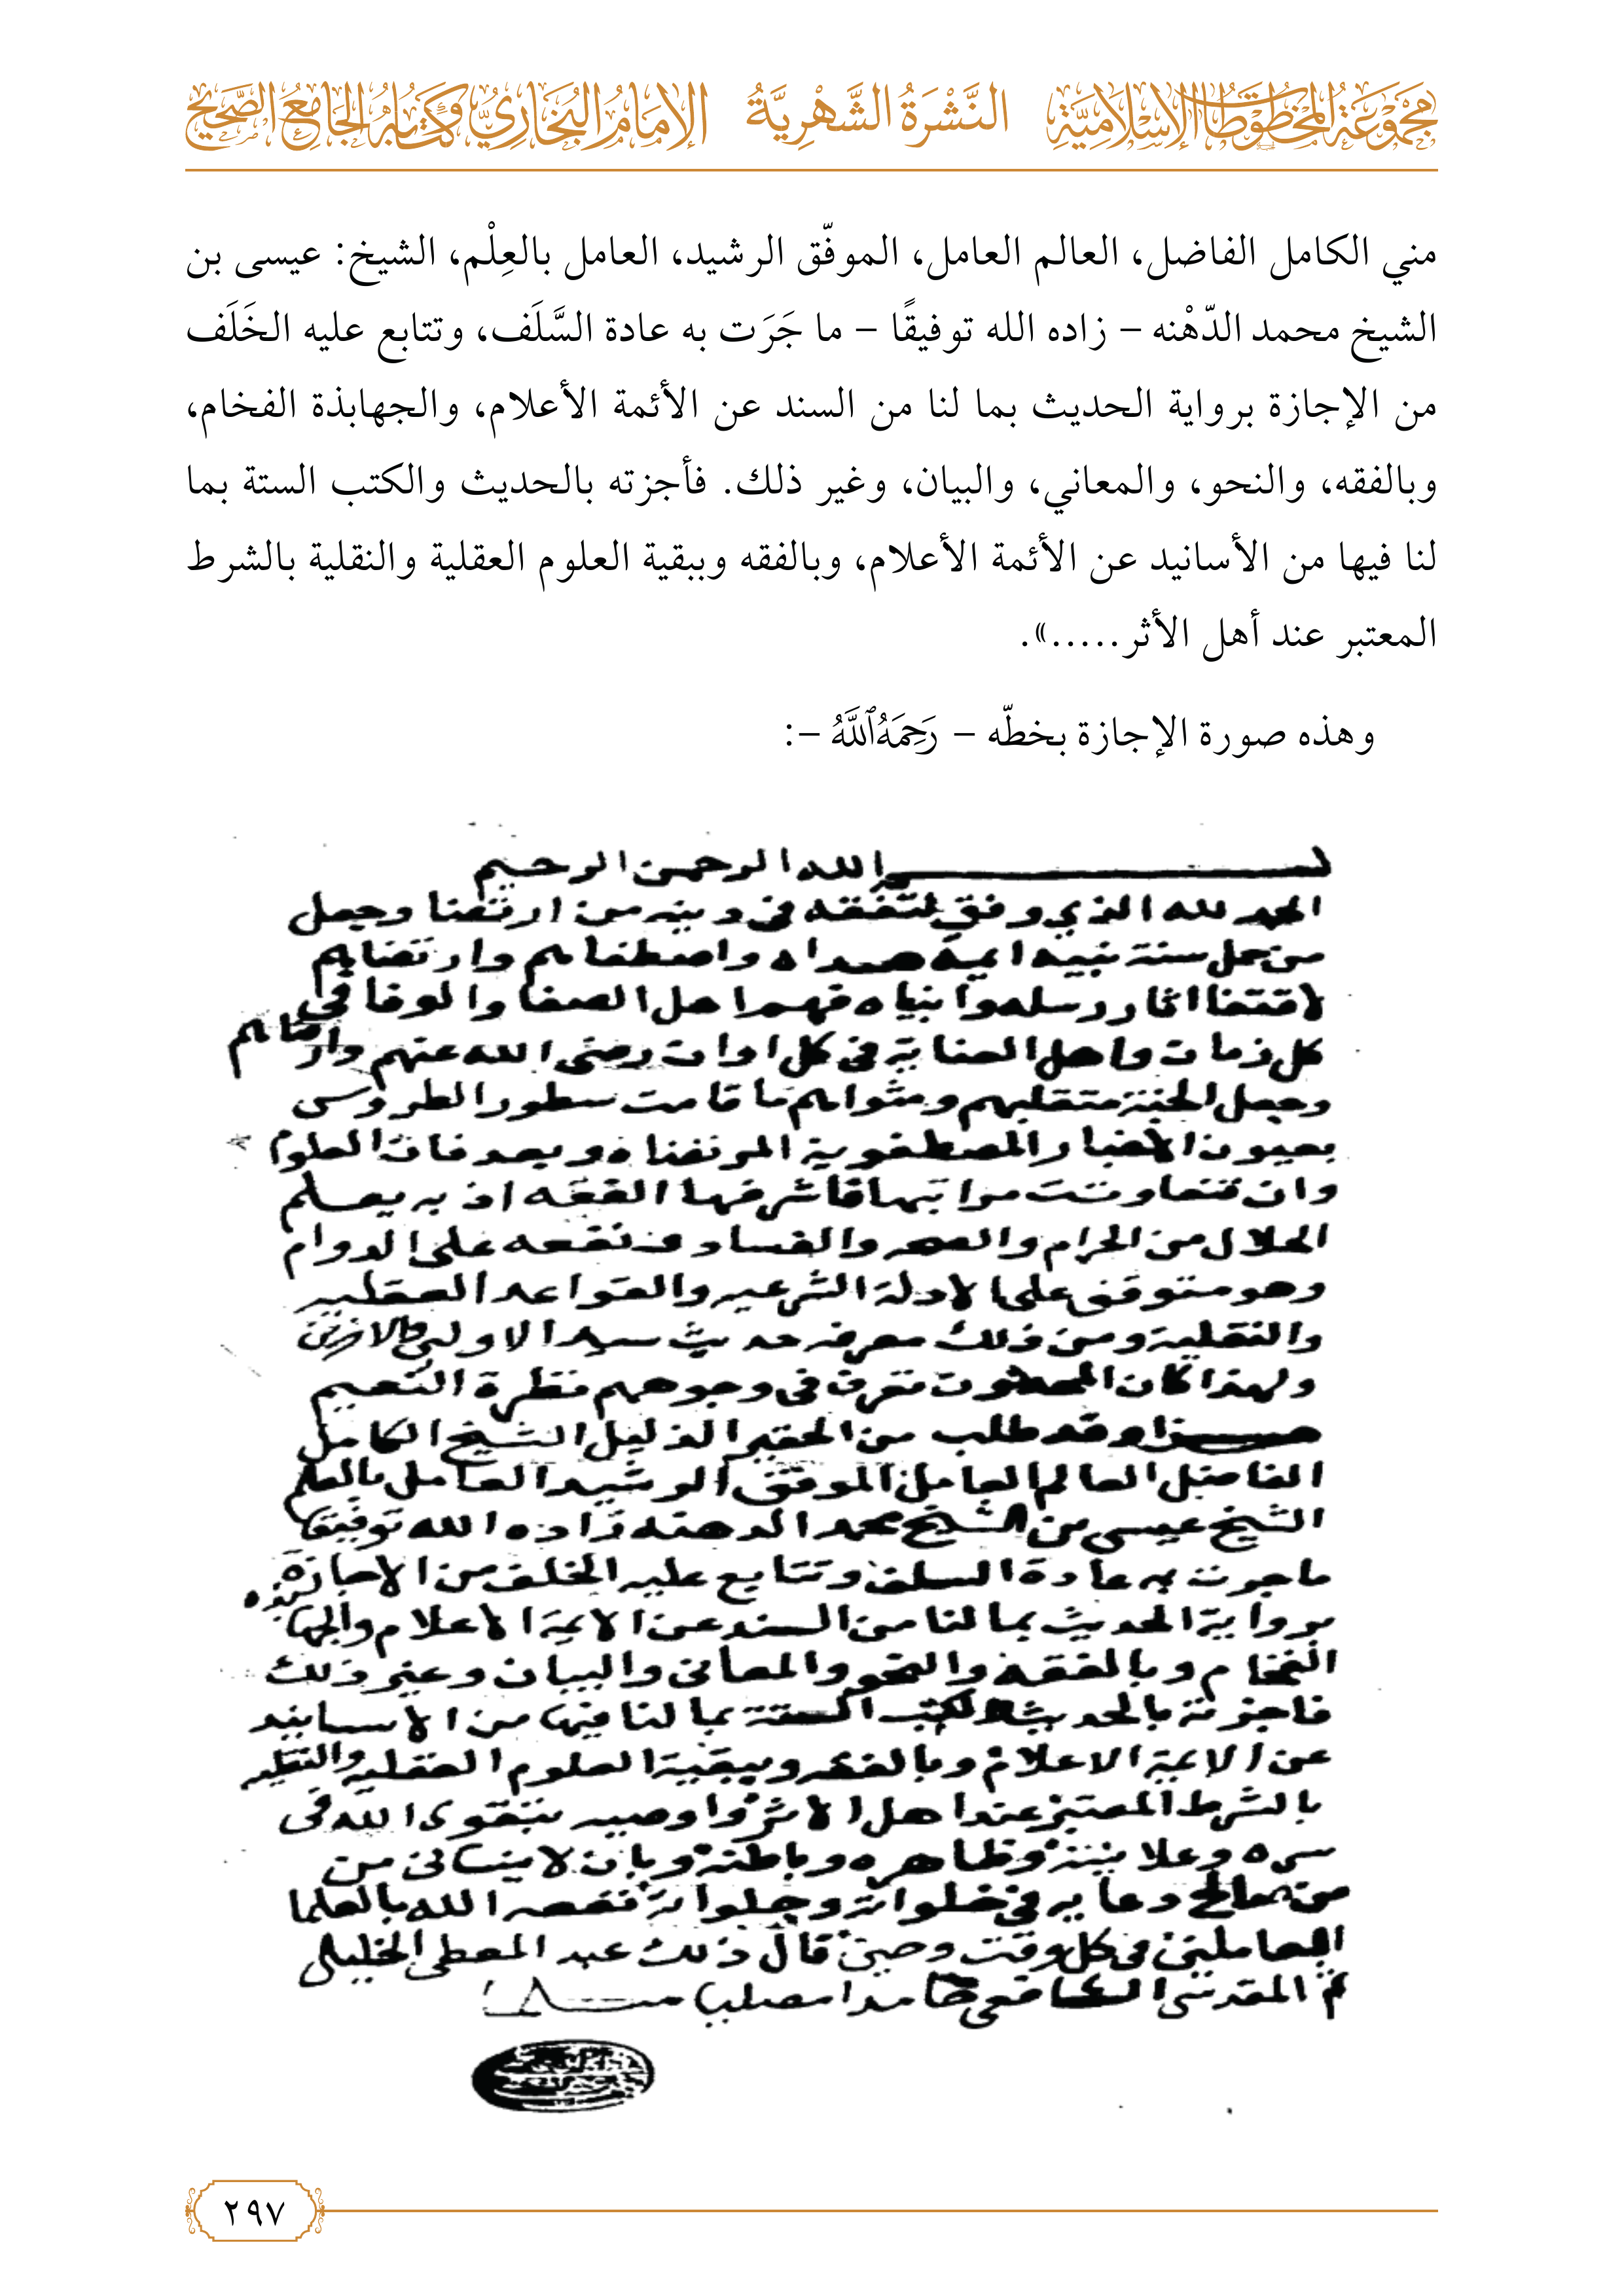 مَجْمُوعَةُ المَخْطُوطَاتِ الإِسْلَامِيَّةِ النَّشْرَةُ الشَّهْرِيَّةُ الإِمَامُ البُخَارِيُّ وَكِتَابُهُ الجَامِعُ الصَّحِيحُ
مني الكامل الفاضل، العالم العامل، الموفّق الرشيد، العامل بالعِلْم، الشيخ: عيسى بن
الشيخ محمد الدّهْنه – زاده الله توفيقًا – ما جَرَت به عادة السَّلَف، وتتابع عليه الخَلَف
من الإجازة برواية الحديث بما لنا من السند عن الأئمة الأعلام، والجهابذة الفخام،
وبالفقه، والنحو، والمعاني، والبيان، وغير ذلك. فأجزته بالحديث والكتب الستة بما
لنا فيها من الأسانيد عن الأئمة الأعلام، وبالفقه وببقية العلوم العقلية والنقلية بالشرط
المعتبر عند أهل الأثر.....».
وهذه صورة الإجازة بخطّه – رَحِمَهُ ٱللَّهُ –:
بسم الله الرحمن الرحيم
الحمد لله الذي وفق لتفقه في دينه من ارتضا وجعل
من حمل سنة نبيه ايمة هداه واصطفاهم وارتضاهم
لاقتفا اثار رسله وانبياه فهم اهل الصفا والوفا في
كل زمان واهل العناية في كل اوان رضي الله عنهم وارضاهم
وجعل الجنة متقلبهم ومثواهم ما قامت سطور الطروس
بعيون الاخبار المصطفوية المرتضاه وبعد فان العلوم
وان تفاوتت مراتبها فاشرفها الفقه اذ به يعلم
الحلال من الحرام والصحه والفساد ونفعه على الدوام
وهو متوقف على الادلة الشرعيه والقواعد العقليه
والنقلية ومن ذلك معرفه حديث سيد الاولين والاخرين
ولهذا كان المحدثون تعرف في وجوههم نظرة النعيم
هذا وقد طلب من الحقير الذليل الشيخ الكامل
الفاضل العالم العامل الموفق الرشيد العامل بالعلم
الشيخ عيسى بن الشيخ محمد الدهنه زاده الله توفيقا
ما جرت به عادة السلف وتتابع عليه الخلف من الاجازة
بروايه الحديث بما لنا من السند عن الايمة الاعلام والجهابذه
الفخام وبالفقه والنحو والمعاني والبيان وغير ذلك
فاجزته بالحديث والكتب الستة بما لنا فيها من الاسانيد
عن الايمة الاعلام وبالفقه وببقية العلوم العقليه والنقليه
بالشرط المعتبر عند اهل الاثر واوصيه بتقوى الله في
سره وعلانيته وظاهره وباطنه وبان لا ينساني من
من صالح دعايه في خلواته وجلواته نفعه الله بالعلما
العاملين في كل وقت وحين قال ذلك عبد المعطي الخليلي
ثم المقدسي الشافعي حامدا مصليا
٢٩٧